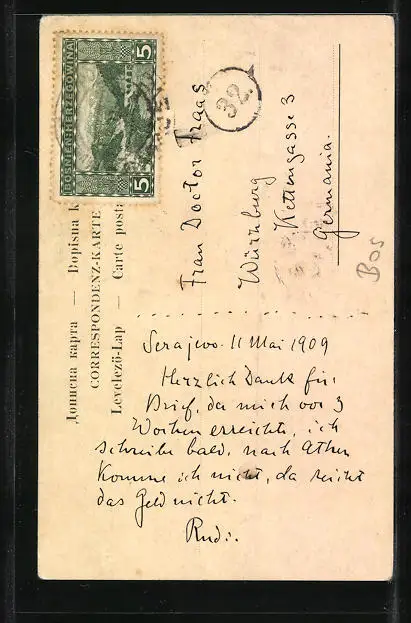 BOSNIEN HERZEGOWINA
5
5
32
Дописна карта — Dopisna k
CORRESPONDENZ-KARTE
Levelező-Lap — Carte posta
Frau Doctor Fraas
Würzburg
Kettengasse 3
Germania.
Bos
Serajevo. 11 Mai 1909
Herzlich Dank für
Brief, der mich vor 3
Wochen erreichte, ich
schreibe bald, nach Athen
komme ich nicht, da reicht
das Geld nicht.
Rudi.